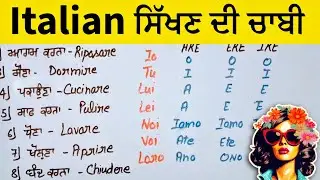 Italian ਸਿੱਖਣ ਦੀ ਚਾਬੀ
ARE ERE IRE
ਆਰਾਮ ਕਰਨਾ - Riposare Io O O O
3) ਸੌਣਾ - Dormire Tu I I I
4) ਪਕਾਉਣਾ - Cucinare Lui A E E
5) ਸਾਫ ਕਰਨਾ - Pulire Lei A E E
6) ਧੋਣਾ - Lavare Noi Iamo Iamo
7) ਖੋਲਣਾ - Aprire Voi Ate Ete
8) ਬੰਦ ਕਰਨਾ - Chiudere Loro Ano Ono